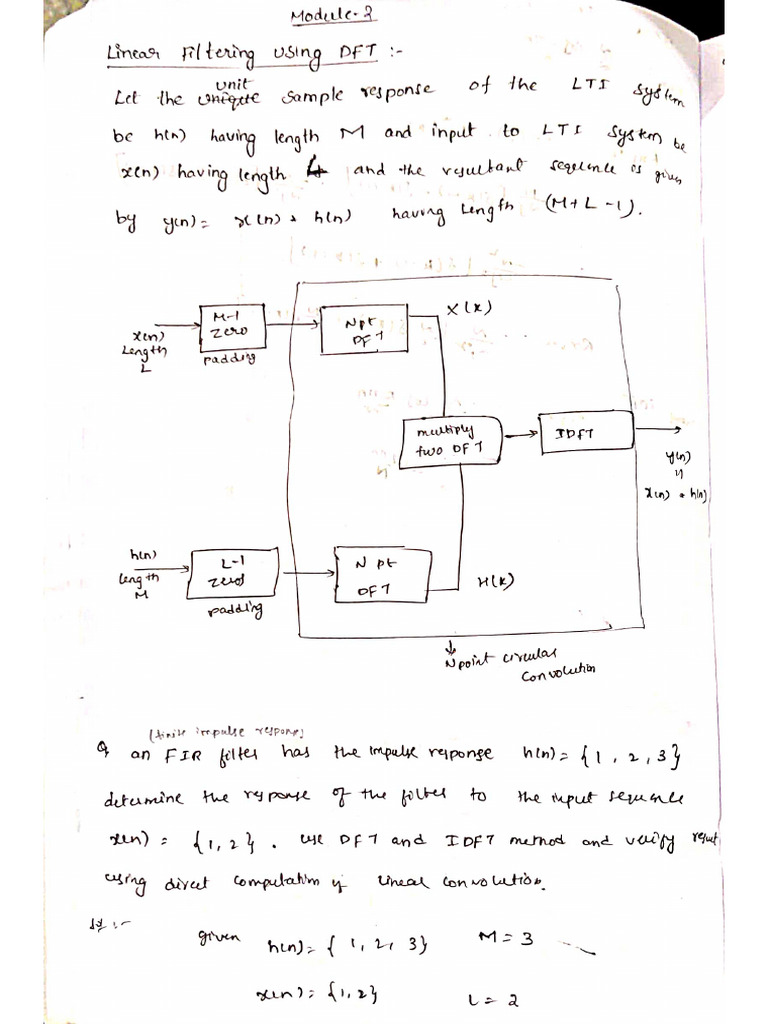 Module-3
Linear Filtering using DFT :-
unit
Let the unique sample response of the LTI system
be h(n) having length M and input to LTI system be
x(n) having length L and the resultant sequence is given
by y(n) = x(n) * h(n) having Length (M+L-1).
M-1
zero
padding
x(n)
Length
L
N pt
DFT
X(k)
multiply
two DFT
IDFT
y(n)
x(n) * h(n)
h(n)
length
M
L-1
zero
padding
N pt
DFT
H(k)
N point circular
convolution
(finite impulse response)
Q an FIR filter has the impulse response h(n) = {1, 2, 3}
determine the response of the filter to the input sequence
x(n) = {1, 2}. use DFT and IDFT method and verify result
using direct computation of linear convolution.
Sol :-
given h(n) = {1, 2, 3} M = 3
x(n) = {1, 2} L = 2